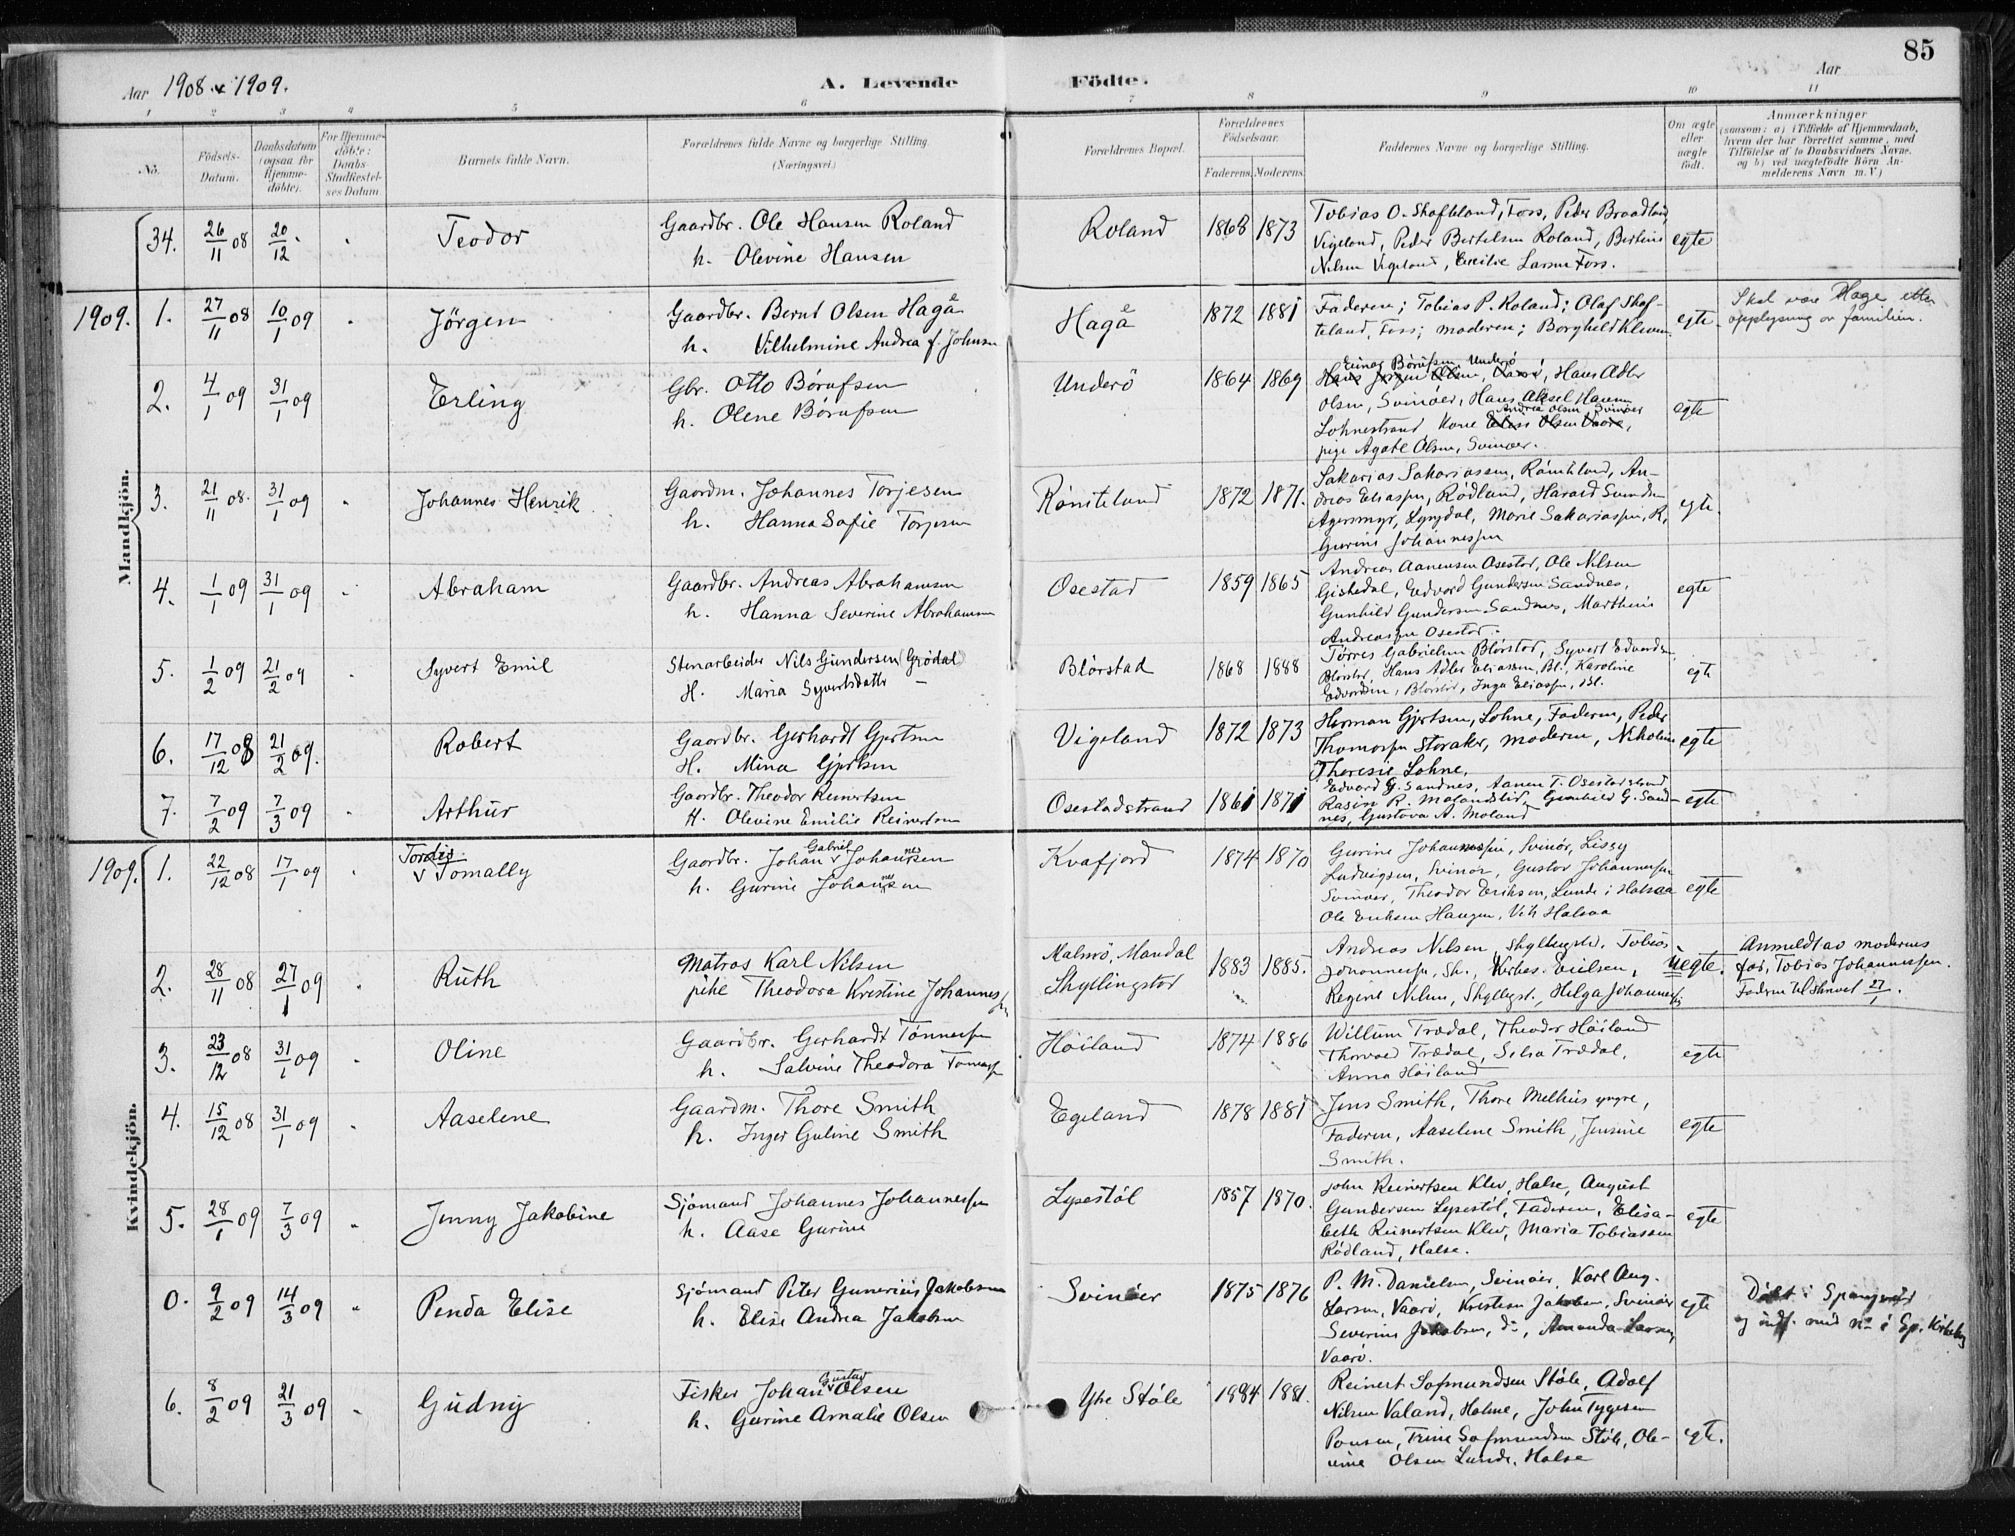 85
Aar 1908 & 1909.
A. Levende Födte.
Aar
1 2 3 4 5 6 7 8 9 10 11
No.
Födsels-Datum.
Daabsdatum (ogsaa for Hjemme-döbte).
For Hjemme-döbte: Daabs-Stadfæstel-ses Datum
Barnets fulde Navn.
Forældrenes fulde Navne og borgerlige Stilling.
(Næringsvei.)
Forældrenes Bopæl.
Forældrenes Födselsaar.
Faderens. Moderens.
Faddernes Navne og borgerlige Stilling.
Om ægte eller uægte födt.
Anmærkninger
(saasom: a) i Tilfælde af Hjemmedaab,
hvem der har forrettet samme, med
Tilföielse af to Daabsvidners Navne.
og b) ved uægtefödte Börn An-
melderens Navn m. V.)
Mandkjön.
34. 26/11 08 20/12 Teodor Gaardbr. Ole Hansen Roland Roland 1868 1873 Tobias O. Skofteland, Foss, Peder Braadland
h. Olevine Hansen Vigeland, Peder Bertelsen Roland, Bertine egte
Nilsen Vigeland, Cecilie Larsen Foss.
1909. 1. 27/11 08 10/1 09 Jörgen Gaardbr. Bernt Olsen Hagå Hagå 1872 1881 Faderen; Tobias P. Roland; Olaf Skof- egte Skal være Hage etter
h. Vilhelmine Andrea f. Johnsen teland, Foss; moderen; Borghild Kleven opplysning av familien.
2. 4/1 09 31/1 09 Erling Gbr. Otto Börufsen Underö 1864 1869 Einar Börufsen Underö
h. Olene Börufsen Hans Jörgen Olsen, Vaarö, Hans Adler
Olsen, Svinöer, Hans Aksel Hansen egte
Andrea Olsen Svinöer
Lohnestrand Kone Olsen Vaarö,
pige Agate Olsen, Svinöer.
3. 21/11 08. 31/1 09 Johannes Henrik Gaardm. Johannes Torjesen Rönteland 1872 1871. Sakarias Sakariassen, Rönteland, An-
h. Hanna Sofie Torjesen dreas Eliassen, Rödland, Harald egte.
Agersmyr, Lyngdal, Marie Sakariassen, R,
Gurine Johannessen
4. 1/1 09 31/1 09 Abraham Gaardbr. Andreas Abrahamsen Osestad 1859 1865 Andreas Aanensen Osestad, Ole Nilsen
h. Hanna Severine Abrahamsen Gisledal, Edvard Gundersen Sandnes, egte
Gunhild Gundersen Sandnes, Marthine
Andreassen Osestad.
5. 1/2 09 21/2 09 Syvert Emil Stenarbeider Nils Gundersen (Grödal) Blörstad 1868 1888 Törres Gabrielsen Blörstad, Syvert Edvardsen
H. Maria Syvertsdatter Blörstad, Hans Adler Eliassen, Bl., Karoline egte
Edvardsen, Blörstad, Inga Eliassen, Bl.
6. 17/12 08 21/2 09. Robert Gaardbr. Gerhardt Gjertsen Vigeland 1872 1873 Herman Gjertsen, Lohne, Faderen, Peder
H. Mina Gjertsen Thomassen Storaker, moderen, Nikoline egte
Theresie Lohne.
7. 7/2 09 7/3 09 Arthur Gaardbr. Theodor Reinertsen Osestadstrand 1861 1871 Edvard G. Sandnes, Aanen T. Osestadstrand
H. Olevine Emilie Reinertsen Rasin R. Molandslid, Gunhild G. Sand- egte
nes, Gustava A. Moland
Kvindekjön.
1909. 1. 22/12 08 17/1 09 Tordis Tomally Gaardbr. Johan Gabriel Johannesen Kvafjord 1874 1870 Gurine Johannessen, Svinör, Lissy
h. Gurine Johannesen Ludvigsen, Svinör, Gustav Johannessen
Svinöer, Theodor Eriksen, Lunde i Halsaa egte
Ole Eriksen Haugen, Vik Halsaa
2. 28/11 08 27/1 09 Ruth Matros Karl Nilsen Malmö, Mandal 1883 1885. Andreas Nilsen, Skyllingstd., Tobias Anmeldt av moderens
pike Theodora Kristine Johannessen Skyllingstad Johannessen, Sk., Eielsen, uegte. far, Tobias Johannessen.
Regine Nilsen, Skyllingst., Helga Johannessen Faderen tilskrevet 27/1.
3. 23/12 08 31/1 09 Oline Gaardbr. Gerhardt Tönnessen Höiland 1874 1886 Willum Trædal, Theodor Höiland
h. Salvine Theodora Tönnessen Thorvald Trædal, Silia Trædal, egte
Anna Höiland
4. 15/12 08 31/1 09 Aaselene Gaardm. Thore Smith Egeland 1878 1881 Jens Smith, Thore Melhus yngre,
h. Inger Guline Smith Faderen, Aaselene Smith, Jensine egte
Smith.
5. 28/1 09 7/3 09 Jenny Jakobine Sjömand Johannes Johannessen Lypestöl 1857 1870. John Reinertsen Klev, Halse, August
h. Aase Gurine Gundersen Lypestöl, Faderen, Elisa- egte
beth Reinertsen Klev, Maria Tobiassen
Rödland, Halse.
0. 9/2 09 14/3 09 Penda Elise Sjömand Peter Gunerius Jakobsen Svinöer 1875 1876 P. M. Danielsen, Svinöer, Karl Aug.
h. Elise Andrea Jakobsen Larsen, Vaarö, Kristian Jakobsen, Svinöer egte Döbt i Spangereid
Severine Jakobsen, do, Amanda Larsen, og indf. med no i Sp. Kirkebog
Vaarö.
6. 8/2 09 21/3 09 Gudny Fisker Johan Gustav Olsen Ytre Stöle 1884 1881. Reinert Sofmundsen Stöle, Adolf
h. Gurine Amalie Olsen Nilsen Valand, Holme, John Tygesen
Ponsen, Trine Sofmundsen Stöle, Ole- egte.
vine Olsen Lunde, Halse